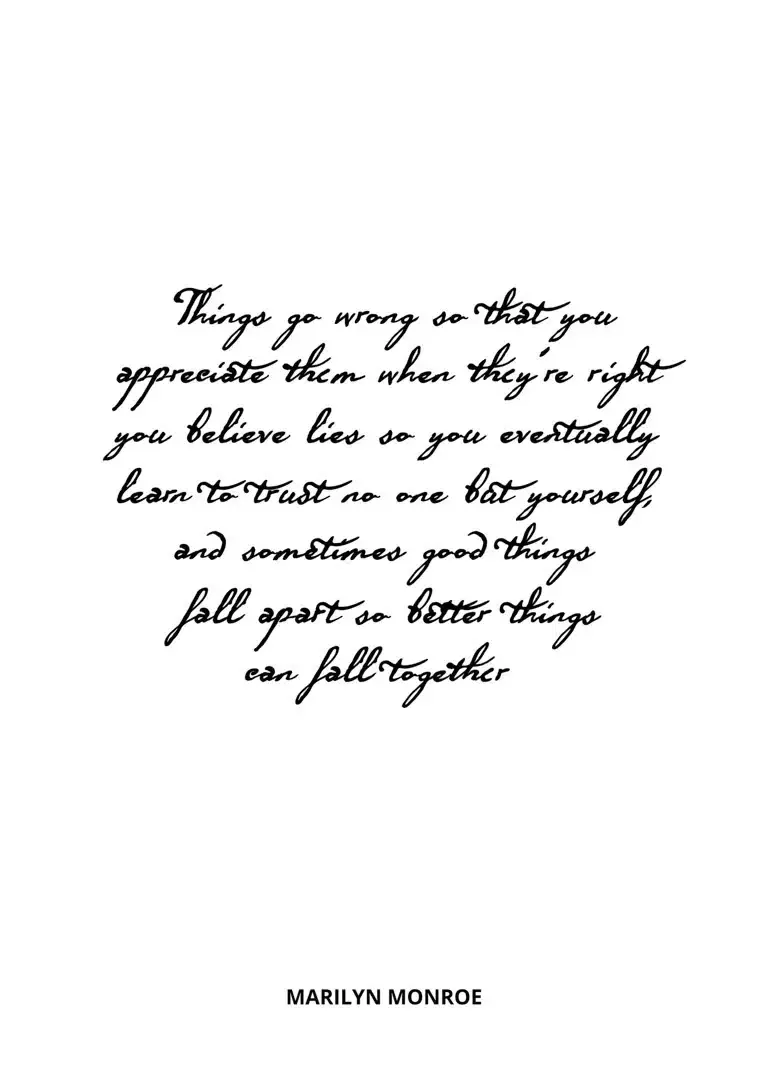 Things go wrong so that you
appreciate them when they're right
you believe lies so you eventually
learn to trust no one but yourself,
and sometimes good things
fall apart so better things
can fall together
MARILYN MONROE